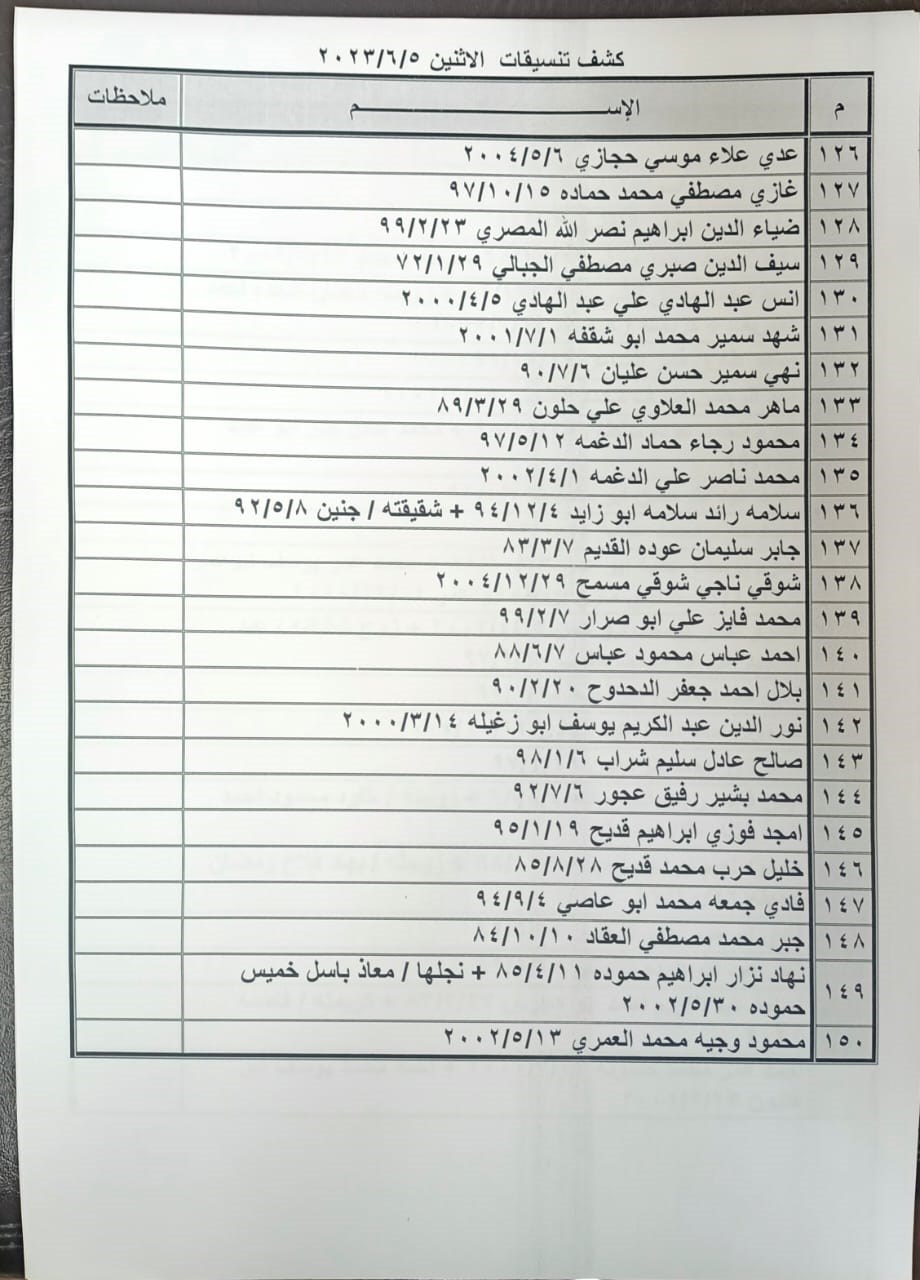 كشف تنسيقات الاثنين ٢٠٢٣/٦/٥
م الإســـــــــــــــم ملاحظات
١٢٦ عدي علاء موسي حجازي ٢٠٠٤/٥/٦
١٢٧ غازي مصطفي محمد حماده ٩٧/١٠/١٥
١٢٨ ضياء الدين ابراهيم نصر الله المصري ٩٩/٢/٢٣
١٢٩ سيف الدين صبري مصطفي الجبالي ٧٢/١/٢٩
١٣٠ انس عبد الهادي علي عبد الهادي ٢٠٠٠/٤/٥
١٣١ شهد سمير محمد ابو شقفه ٢٠٠١/٧/١
١٣٢ نهي سمير حسن عليان ٩٠/٧/٦
١٣٣ ماهر محمد العلاوي علي حلون ٨٩/٣/٢٩
١٣٤ محمود رجاء حماد الدغمه ٩٧/٥/١٢
١٣٥ محمد ناصر علي الدغمه ٢٠٠٢/٤/١
١٣٦ سلامه رائد سلامه ابو زايد ٩٤/١٢/٤ + شقيقته / جنين ٩٢/٥/٨
١٣٧ جابر سليمان عوده القديم ٨٣/٣/٧
١٣٨ شوقي ناجي شوقي مسمح ٢٠٠٤/١٢/٢٩
١٣٩ محمد فايز علي ابو صرار ٩٩/٢/٧
١٤٠ احمد عباس محمود عباس ٨٨/٦/٧
١٤١ بلال احمد جعفر الدحدوح ٩٠/٢/٢٠
١٤٢ نور الدين عبد الكريم يوسف ابو زغيله ٢٠٠٠/٣/١٤
١٤٣ صالح عادل سليم شراب ٩٨/١/٦
١٤٤ محمد بشير رفيق عجور ٩٢/٧/٦
١٤٥ امجد فوزي ابراهيم قديح ٩٥/١/١٩
١٤٦ خليل حرب محمد قديح ٨٥/٨/٢٨
١٤٧ فادي جمعه محمد ابو عاصي ٩٤/٩/٤
١٤٨ جبر محمد مصطفي العقاد ٨٤/١٠/١٠
١٤٩ نهاد نزار ابراهيم حموده ٨٥/٤/١١ + نجلها / معاذ باسل خميس
حموده ٢٠٠٢/٥/٣٠
١٥٠ محمود وجيه محمد العمري ٢٠٠٢/٥/١٣